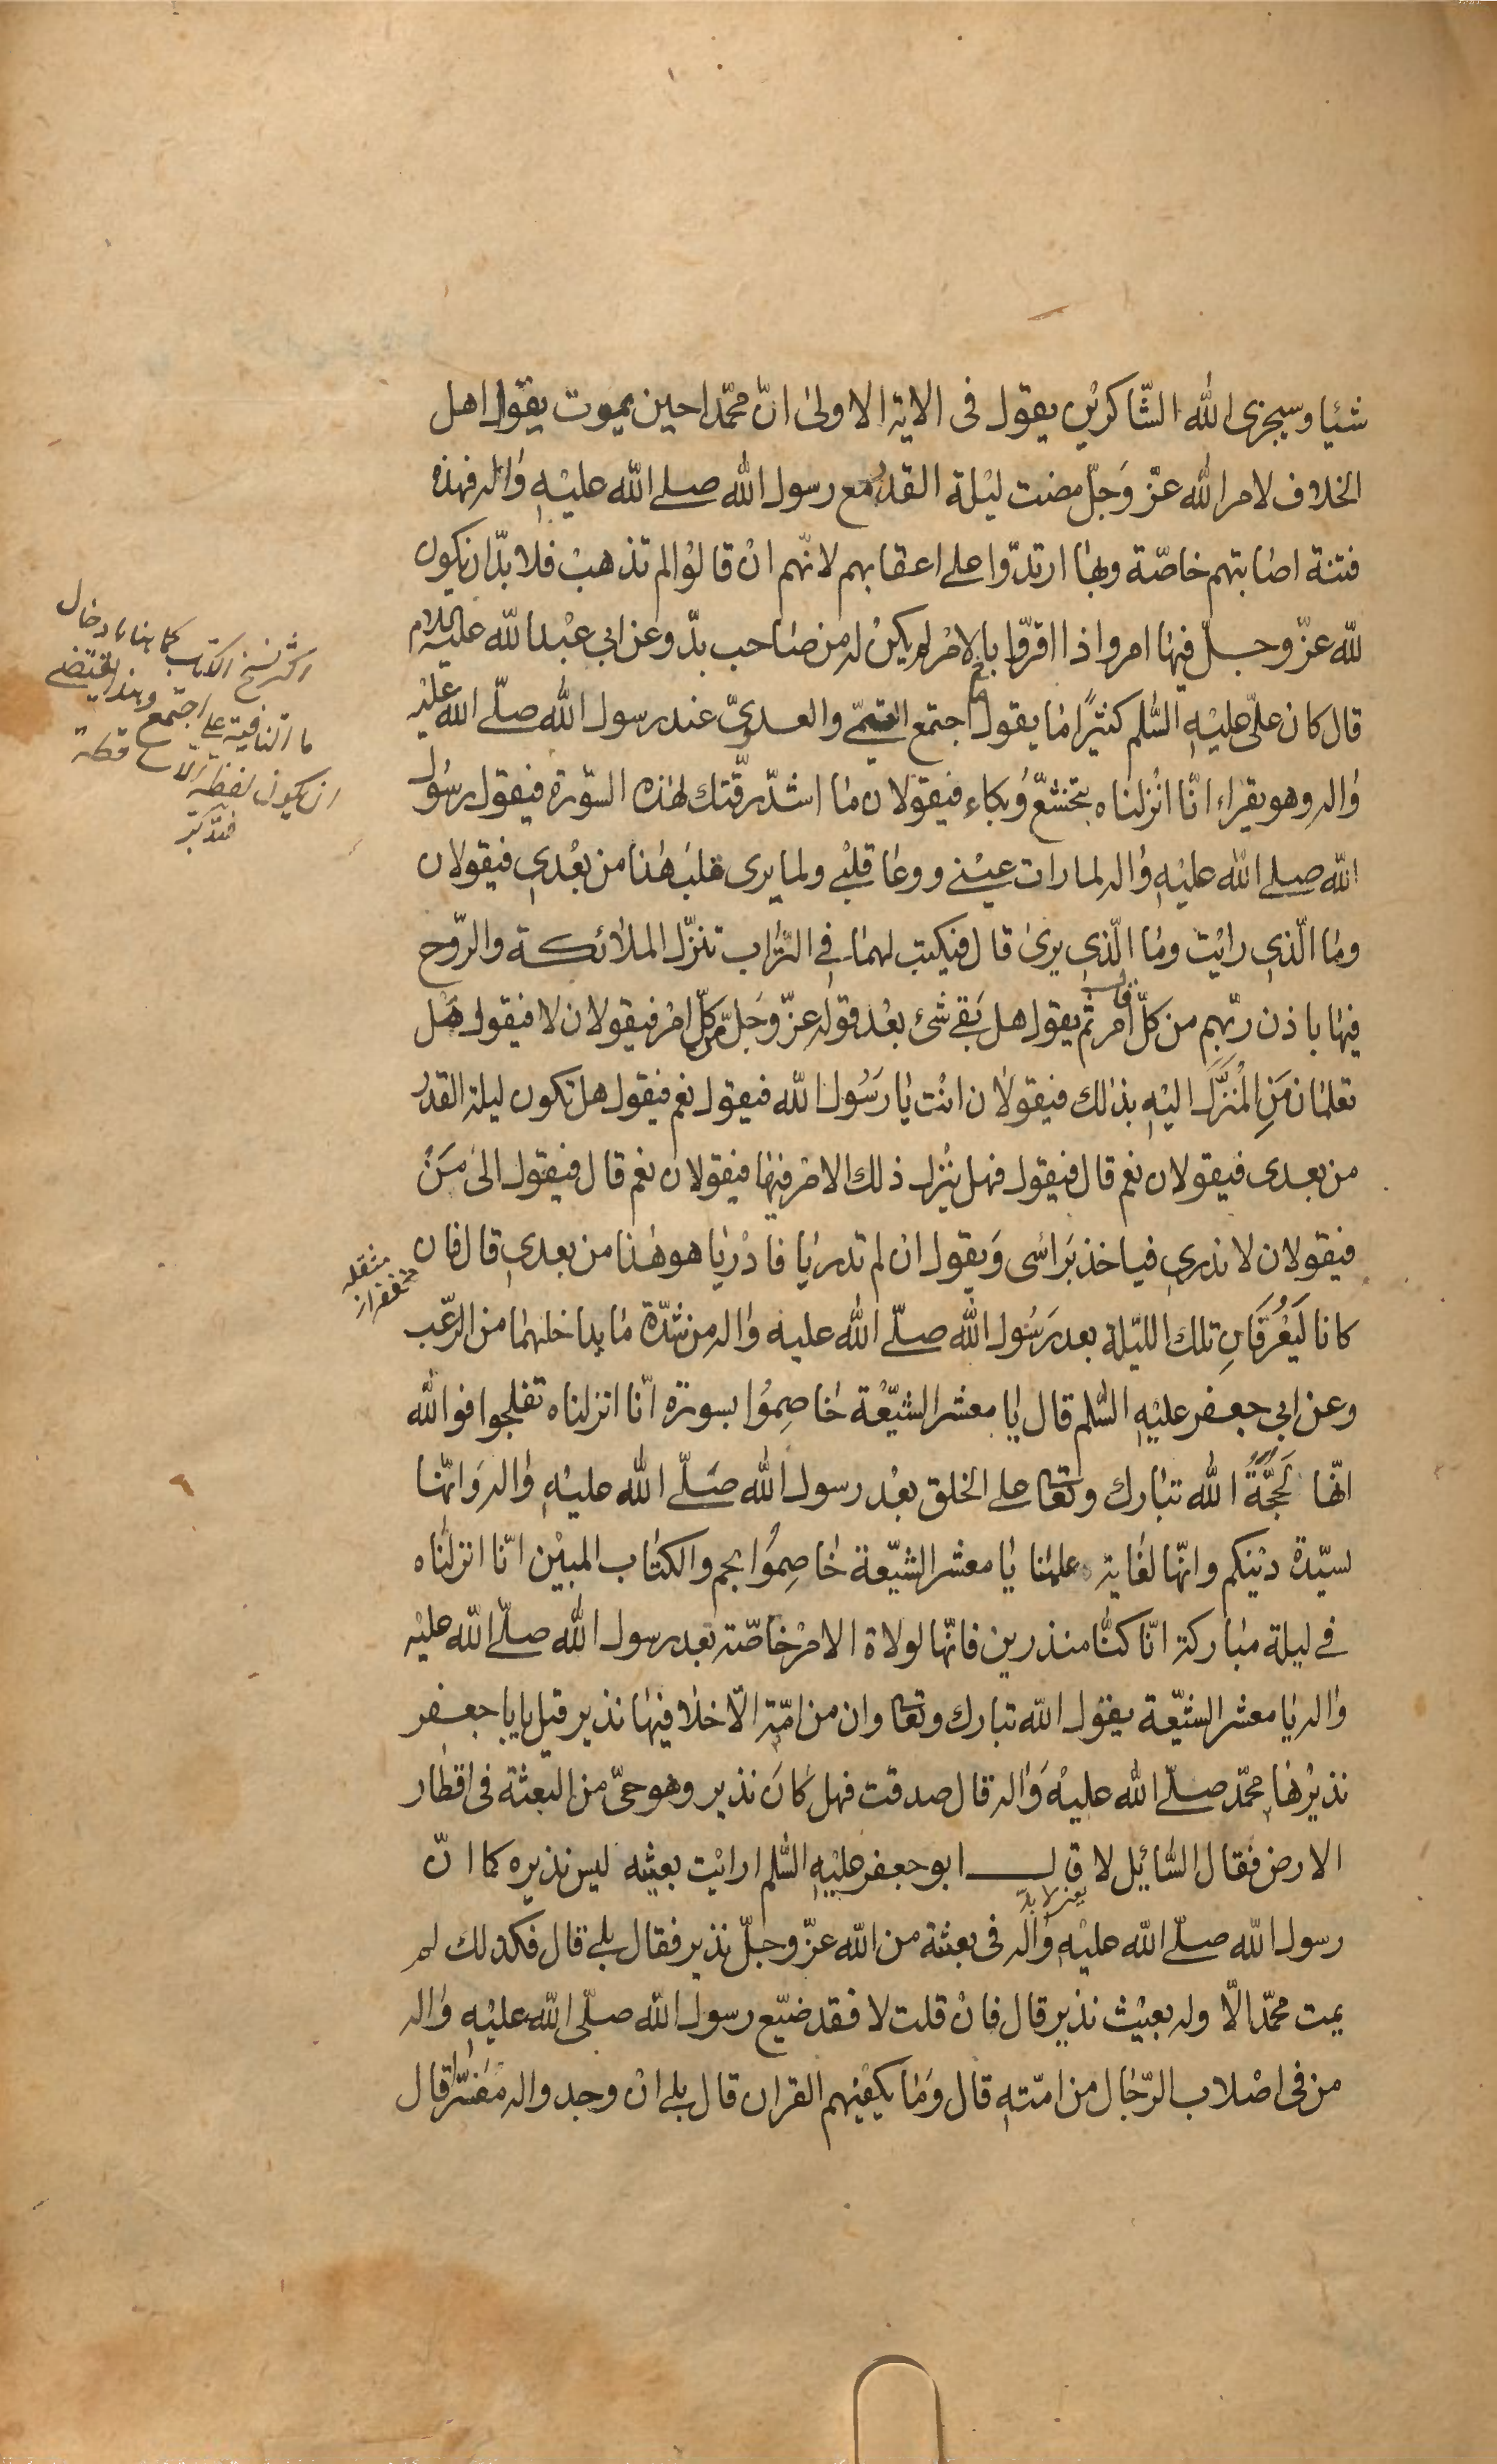 شئيا وسيجزى الله الشّاكرين يقول فى الاية الاولى انّ محمّدا حين يموت يقول اهل
الخلاف لامر الله عزّ وَجلّ مضت ليْلة القدْر مع رسول الله صلى الله عليْهِ وَاله فهذه
فتنة اصَابتهم خاصّة وبهَا ارتدّوا على اعقابهم لانّهم انْ قالوْا لم تذهبْ فلا بدّ ان يكون
لله عزّ وجلّ فيهَا امر واذا اقرّوا بالامْر لم يكنْ له من صَاحب بدّ وعن ابي عبْد الله عليه السلام
قال كان علىّ عليْهِ السَّلم كثيرًا مَا يقول ما اجتمع التيمّى والعدوىّ عند رسول الله صلّى الله عليْه
وَاله وهو يقراء انّا انْزلنَاه بتخشعّ وُبكاء فيقولان مَا اشدّ رقّتك لهٰذه السّورة فيقول رسُول
الله صلى الله عليْهِ وَاله لما رات عيْنى ووعَا قلبْى ولما يرى قلبُ هٰذا من بعْدي فيقولان
ومَا الّذي رايْت ومَا الّذي يرىٰ قال فيكتب لهمَا فى التّراب تنزّل الملائكة والرّوح
فيهَا باذن ربّهم من كلّ امر قال ثم يقول هل بَقى شئ بعْد قوله عزّ وَجلّ من كلّ امْر فيقولان لا فيقول هَل
تعلمَان مَنِ المُنزَّلُ اليْهِ بذٰلك فيقولان انْت يَا رَسُول الله فيقول نعم فيقول هل تكون ليلة القدْر
من بعدى فيقولان نعم قال فيقول فهل يُنزل ذلك الامْر فيهَا فيقولان نعم قال فيقول الىٰ مَنْ
فيقولان لا ندري فياخذ برَاسى وَيقول ان لم تدريَا فادْريَا هو هٰذا من بعدي قال فان
كانا ليَعْرفَانِ تلك الليّلة بعد رَسُول الله صلّى الله عليه وَاله من شدّة مَا يداخلهمَا من الرّعب
وعن ابي جعفر عليْهِ السَّلم قال يَا معشر الشيّعْة خَاصِمُوا بسورة انّا انزلناه تفلجوا فوالله
انّها لَحجَّةُ الله تبَارك وتعَا على الخلق بعْد رسول الله صَلّى الله عليْهِ وَاله وَانّها
لسيّدة ديْنكم وانّها لغَاية علمْنا يَا معشر الشيّعة خَاصِموُا بحم والكتاب المبيْن انّا انزلنَاه
فى ليلة مبَاركة انّا كنَّا منذرين فانّها لولاة الامْر خاصّة بعد رسول الله صلّى الله عليْه
وَاله يَا معشر الشيّعة يقول الله تبارك وتعَا وان من امّة الّا خلا فيهَا نذير قيل يا ابا جعفر
نذيرُهَا محمّد صلّى الله عليْه وَاله قال صدقت فهل كَانَ نذير وهو حىّ من البعثة فى اقطَار
الارض فقال السَّائيل لا قال ابو جعفر عليْهِ السَّلم ارايْت بعيثه ليس نذيره كما انّ
رسول الله صلّى الله عليْهِ وَاله فى بعثة من الله عزّ وجلّ نذير فقال بلى قال فكذلك لم
يمت محمّد الّا وله بعيْث نذير قال فانْ قلت لا فقد ضيّع رسول الله صلّى الله عليْهِ وَاله
من فى اصْلاب الرّجَال من امّتهِ قال وَمَا يكفيْهم القران قال بلى انْ وجدوا له مفسّرًا قال
اكثر نسخ الكتاب كما هنا بادخال
ما النافية على اجتمع وهذا يقتضى
ان يكون لفظة الا سا قطة
فتدبّر